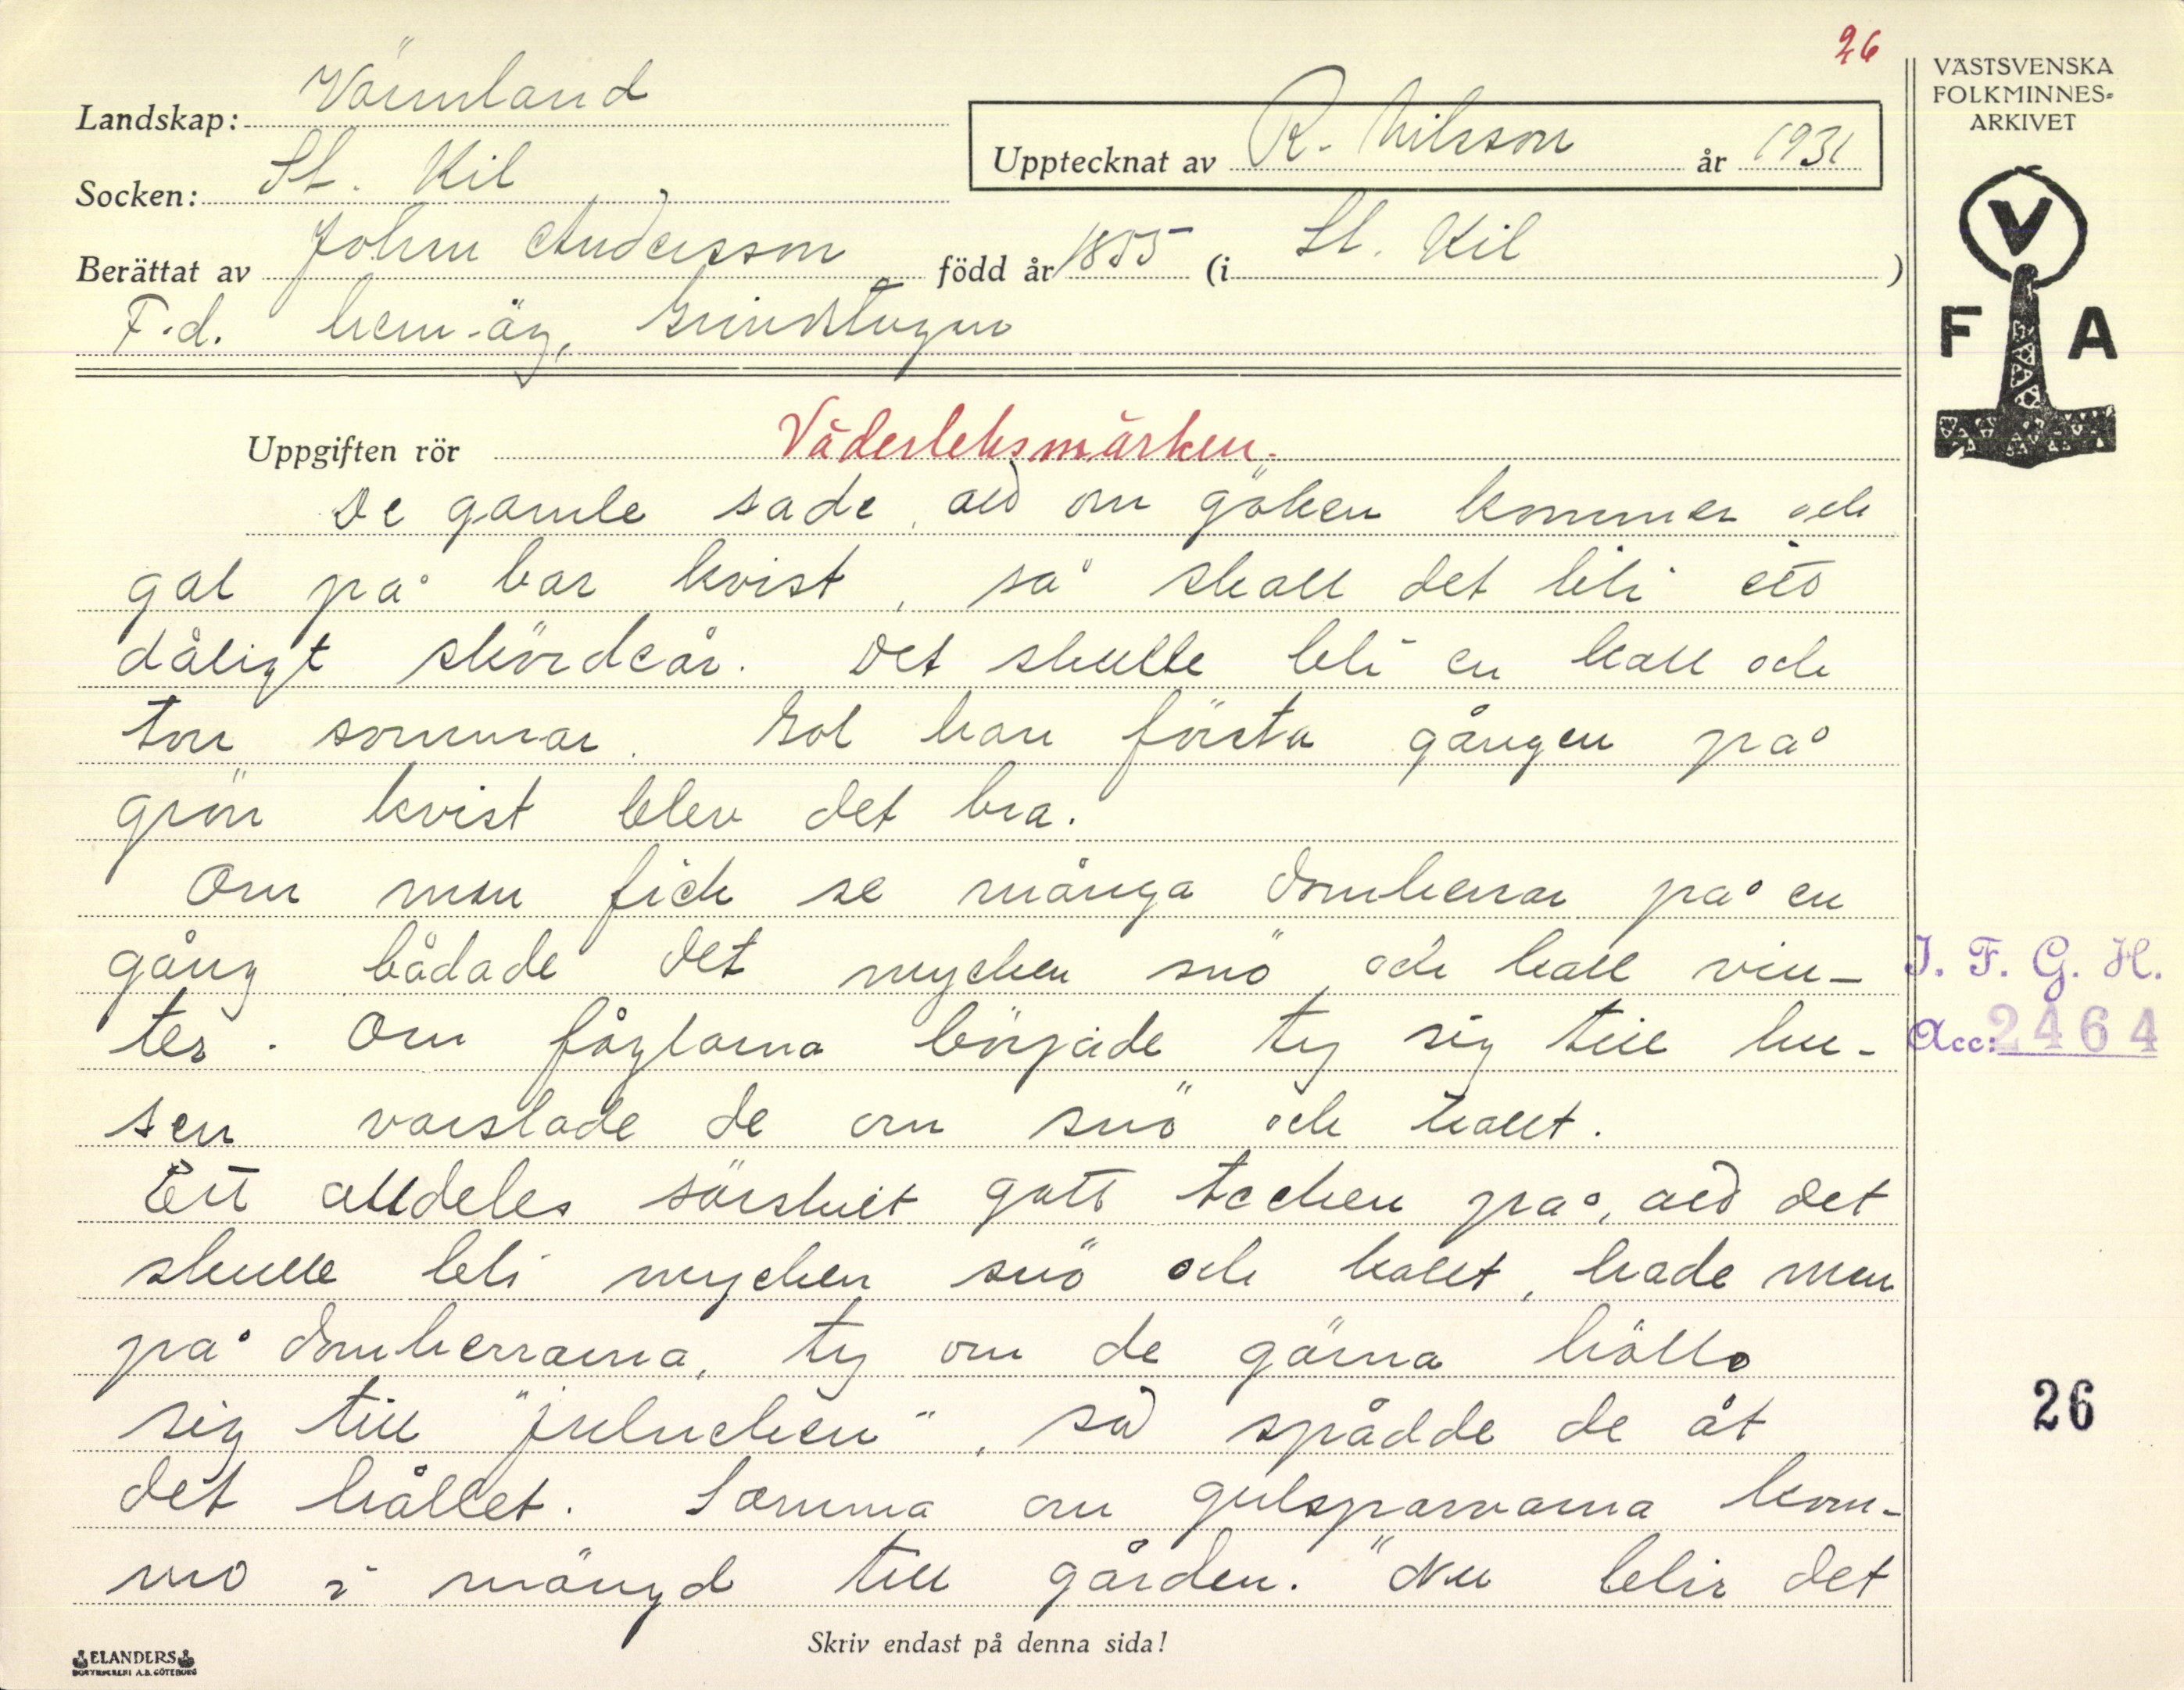 26
Landskap: Värmland
Socken: St. Kil
Upptecknat av R. Nilsson år 1931
Berättat av John Andersson född år 1855 (i St. Kil)
F.d. hem-äg,
Uppgiften rör Väderleksmärken.
De gamle sade, att om göken kommer och
gal på bar kvist, så skall det bli ett
dåligt skördeår. Det skulle bli en kall och
torr sommar. Gol han första gången på
grön kvist blev det bra.
Om man fick se många domherrar på en
gång bådade det mycken snö och kall vin-
ter. Om fåglarna började ty sig till hu-
sen varslade de om snö och kallt.
Ett alldeles särskilt gott tecken på, att det
skulle bli mycken snö och kallt, hade man
på domherrarna, ty om de gärna höllo
sig till "julneken", så spådde de åt
det hållet. Samma om gulsparvarna kom-
mo i mängd till gården. "Nu blir det
Skriv endast på denna sida!
ELANDERS
BOKTRYCKERI A.B. GÖTEBORG
VÄSTSVENSKA
FOLKMINNES-
ARKIVET
V
F A
I. F. G. H.
Acc: 2464
26